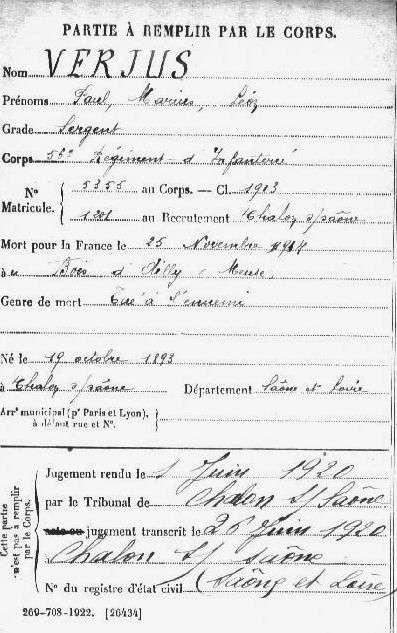 PARTIE À REMPLIR PAR LE CORPS.
Nom VERJUS
Prénoms Paul, Marius, Léoz
Grade Sergent
Corps 56e Régiment d'Infanterie
N° Matricule. { 5355 au Corps. — Cl. 1913
1381 au Recrutement Chalon s/saône
Mort pour la France le 25 Novembre 1914
à Bois d'Ailly, Meuse
Genre de mort Tué à l'ennemi
Né le 19 octobre 1893
à Chalon s/saône Département Saône et Loire
Arrt municipal (pr Paris et Lyon),
à défaut rue et N°.
Cette partie n'est pas à remplir par le Corps.
Jugement rendu le 1 Juin 1920
par le Tribunal de Chalon S/ Saône
acte ou jugement transcrit le 26 Juin 1920
Chalon S/ saône
N° du registre d'état civil (Saône et Loire
269-708-1922. [26434]